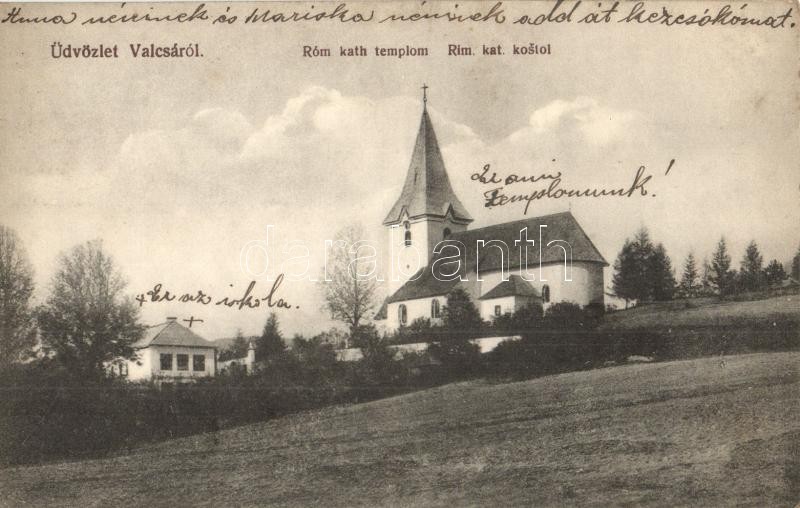 Anna néninek és Mariska néninek add át kezcsókomat.
Üdvözlet Valcsáról.
Róm kath templom Rim. kat. koštol
Ez a mi
Templomunk!
+ Ez az iskola.
+
darabanth